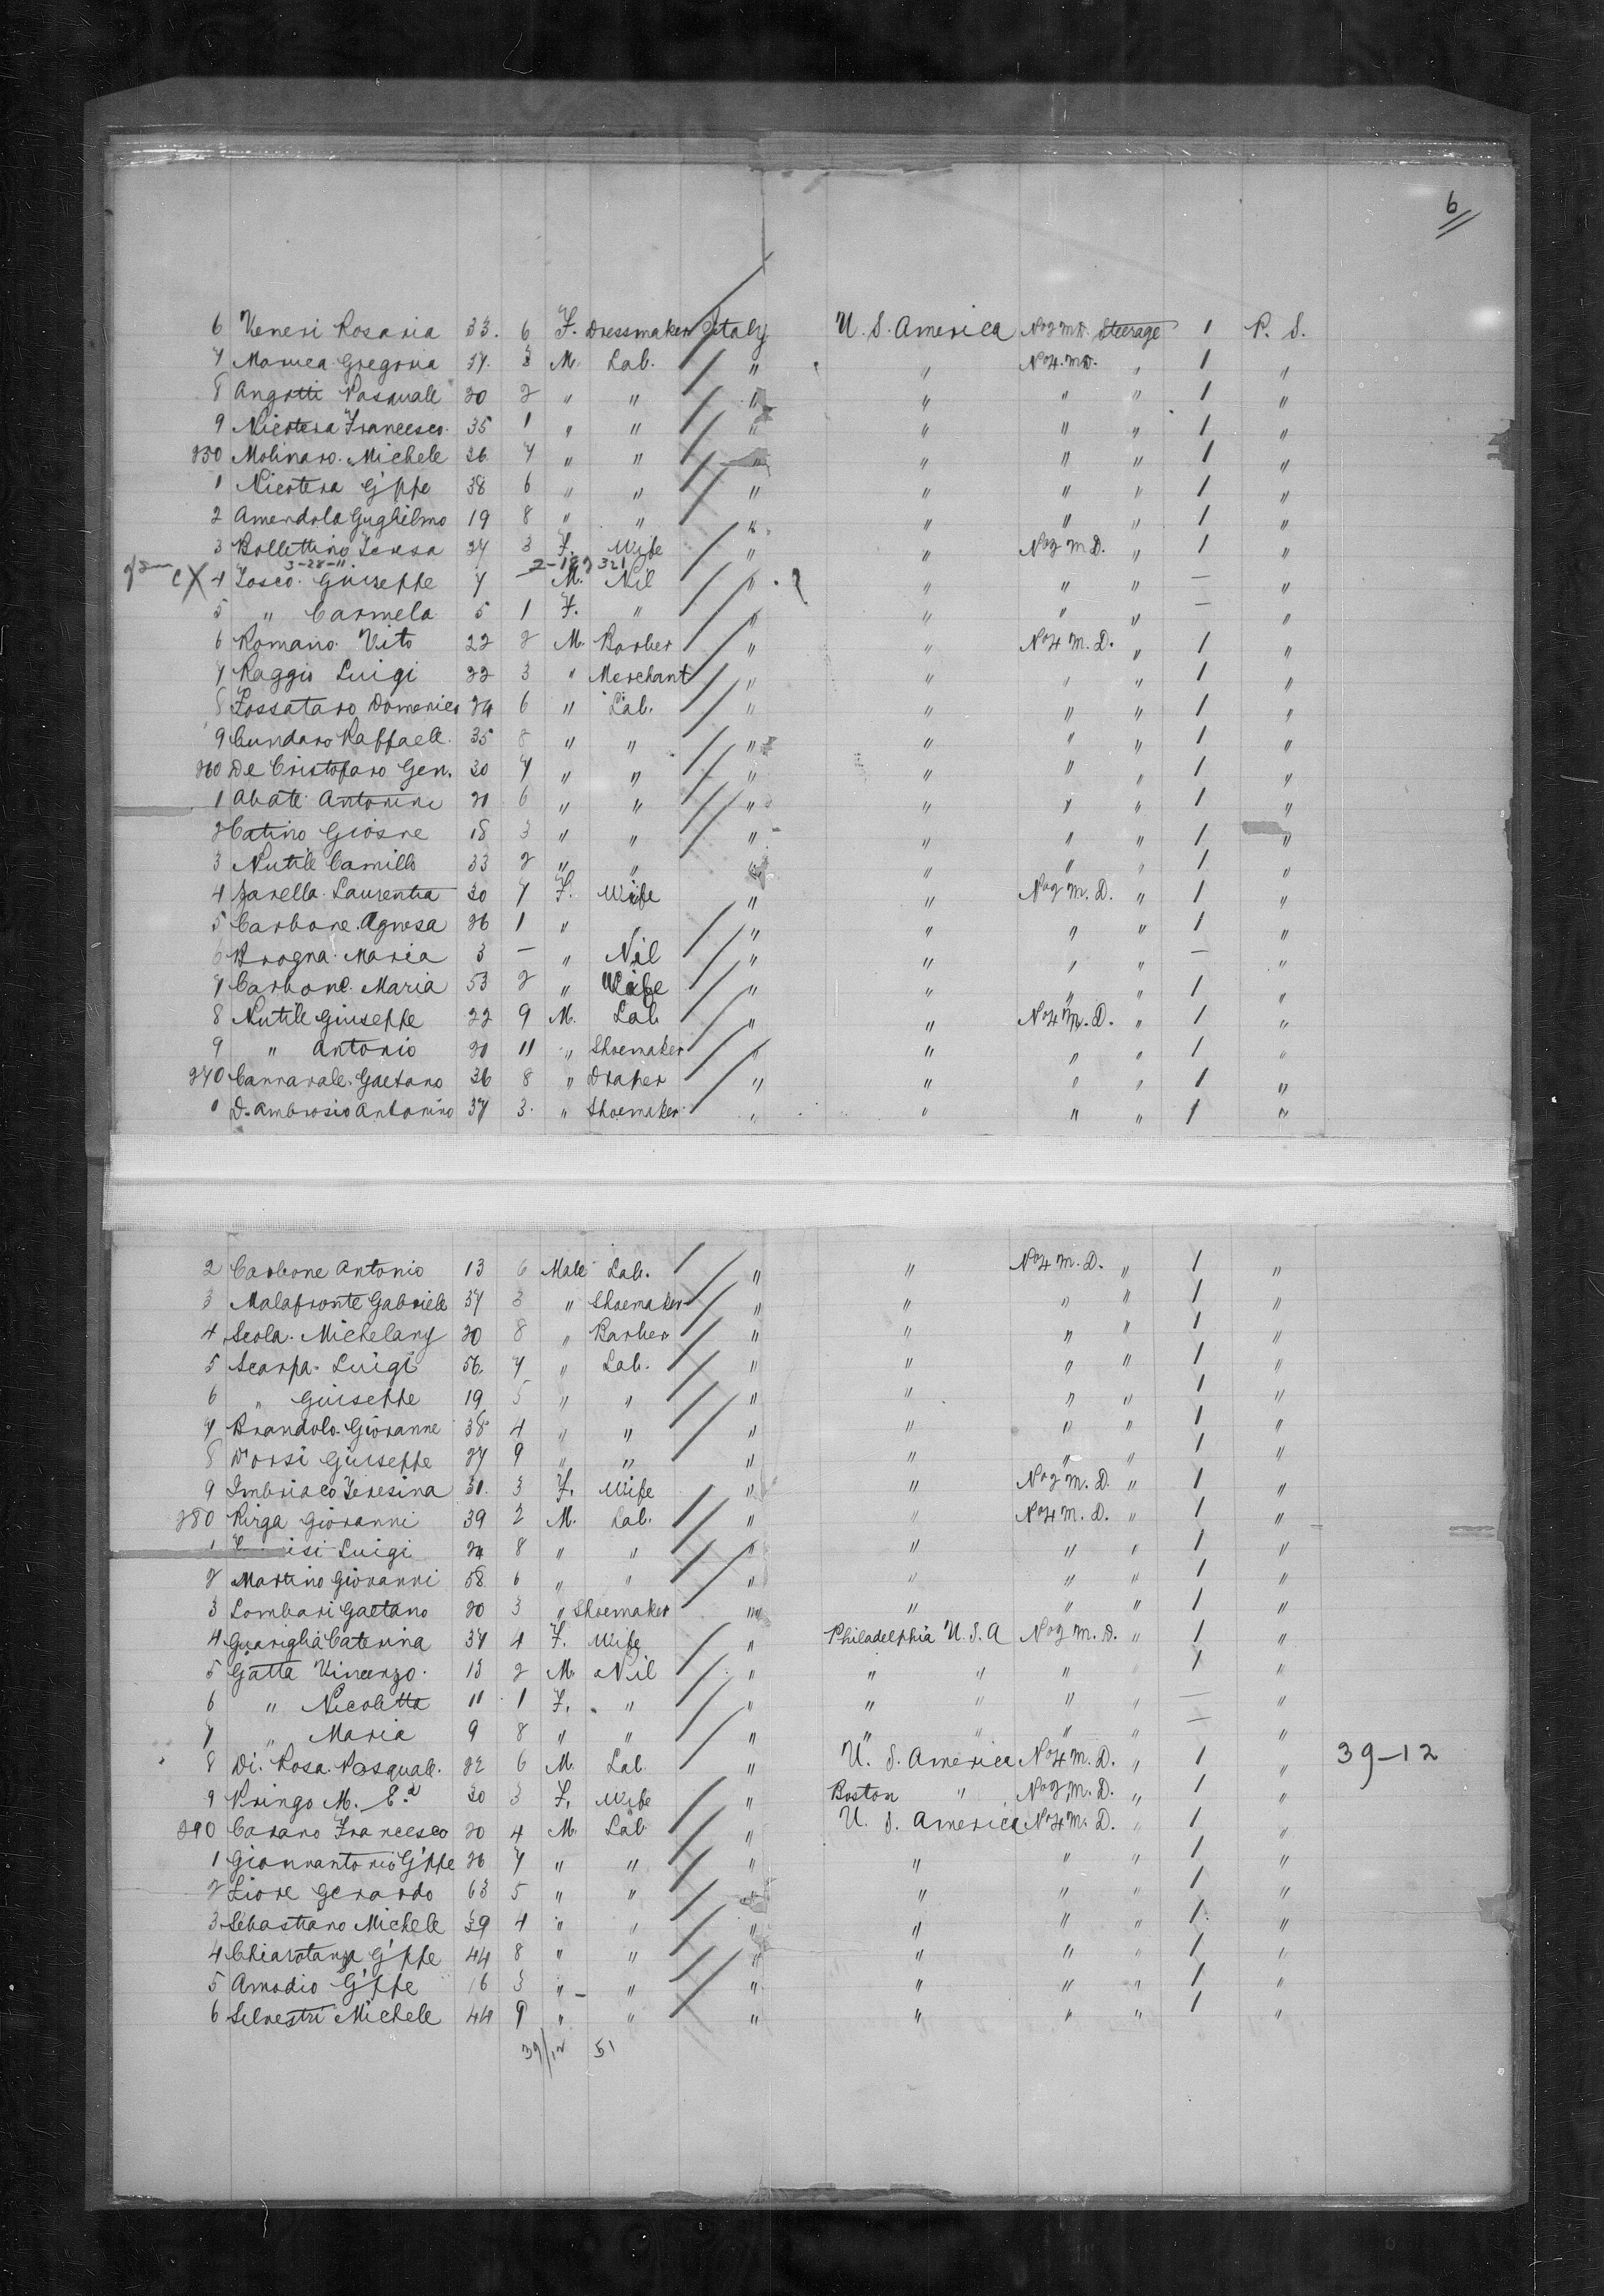 6
6 Veneri Rosaria 33. 6 F. Dressmaker Italy U. S. America No 2 M.D. Steerage 1 P. S.
7 Gregoria 37. 3 M. Lab. " " No 4. M.D. " 1 "
8 Angotti Pasquale 20 2 " " " " " " 1 "
9 Nicotera Francesco. 35 1 " " " " " " 1 "
250 Molinaro. Michele 26 7 " " " " " " 1 "
1 Nicotera G'ppe 38 6 " " " " " " 1 "
2 Amendola Guglielmo 19 8 " " " " " " 1 "
3 Bollettino Teresa 27 3 F. Wife " " No 2 M D. " 1 "
3-28-11
CX 4 Tosco. Giuseppe 7 — M. Nil " " " " — "
5 " Carmela 5 1 F. " " " " " — "
6 Romano. Vito 22 2 M. Barber " " No 4 M. D. " 1 "
7 Raggio Luigi 22 3 " Merchant " " " " 1 "
8 Fossataro Domenico 24 6 " Lab. " " " " 1 "
9 Cundaro Raffaele. 35 8 " " " " " " 1 "
260 De Cristofaro Gen. 30 7 " " " " " " 1 "
1 Abate Antonini 20 6 " " " " " " 1 "
2 Catino Giosne 18 3 " " " " " " 1 "
3 Nutile Camillo 33 2 " " " " " " 1 "
4 Zarella Laurentia 30 7 F. Wife " " No 2 M. D. " 1 "
5 Carbone. Agnesa 26 1 " , " " " " 1 "
6 Brogna Maria 3 — " Nil " " " " — "
7 Carbone. Maria 53 2 " Wife " " " " 1 "
8 Nutile Giuseppe 22 9 M. Lab " " No 4 M. D. " 1 "
9 " Antonio 20 11 " Shoemaker " " " " 1 "
270 Cannavale. Gaetano 36 8 " Draper " " " " 1 "
1 D. Ambrosio Antonino 37 3. " Shoemaker. " " " " 1 "
2 Carbone Antonio 13 6 Male Lab. " " No 4 M. D. " 1 "
3 Malafronte Gabriele 37 3 " Shoemaker " " " " 1 "
4 Scola. Michelang 20 8 " Barber " " " " 1 "
5 Scarpa. Luigi 56. 7 " Lab. " " " " 1 "
6 " Giuseppe 19 5 " " " " " " 1 "
7 Brandolo. Giovanne 38 4 " " " " " " 1 "
8 D'orsi Giuseppe 27 9 " " " " " " 1 "
9 Imbriaco Teresina 30. 3 F. Wife " " No 2 M. D. " 1 "
280 Pirga Giovanni 39 2 M. Lab. " " No 4 M. D. " 1 "
1 Luigi 24 8 " " " " " " 1 "
2 Martino Giovanni 58 6 " " " " " " 1 "
3 Lombari Gaetano 20 3 " Shoemaker " " " " 1 "
4 Guariglia Caterina 37 4 F. Wife " Philadelphia U. S. A No 2 M. D. " 1 "
5 Gatta Vincenzo. 13 2 M. Nil " " " " " 1 "
6 " Nicoletta 11 1 F. " " " " " " — "
7 " Maria 9 8 " " " " " " — "
8 Di. Rosa. Pasquale. 22 6 M. Lab. " U. S. America No 4 M. D. " 1 " 39-12
9 Pringo M. Ea 30 3 F. Wife " Boston " No 2 M. D. " 1 "
290 Carano Francesco 20 4 M. Lab " U. S. America No 4 M. D. " 1 "
1 Gionnantonio G'ppe 26 7 " " " " " " 1 "
2 Fiore Gerardo 63 5 " " " " " " 1 "
3 Sebastiano Michele 39 4 " " " " " " 1. "
4 Chiarotanza G'ppe 44 8 " " " " " " 1 "
5 Amodio G'ppe 16 3 " " " " " " 1 "
6 Silvestri Michele 44 9 " " " " " " 1 "
39/12 51